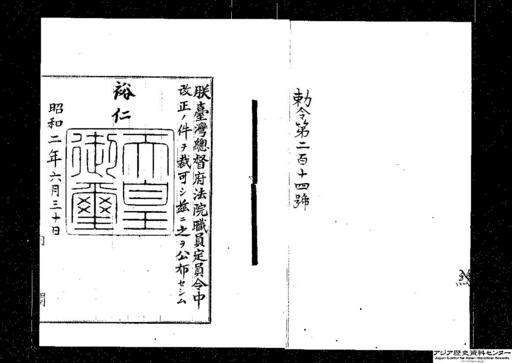 勅令第二百十四號
朕臺灣總督府法院職員定員令中
改正ノ件ヲ裁可シ茲ニ之ヲ公布セシム
裕仁
天皇
御璽
昭和二年六月三十日
アジア歴史資料センター
Japan Center for Asian Historical Records